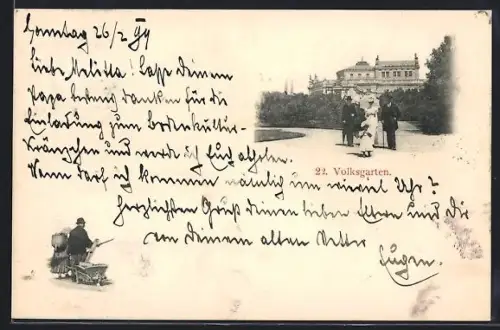 Sonntag 26/2 99
Liebe Melitta! Lasse Deinem
Papa bestens danken für die
Einladung zum Bodenkultur-
Kränzchen und werde ich Euch abholen.
Wann darf ich kommen nämlich um wieviel Uhr?
Herzlichen Gruß Deinen lieben Eltern und Dir
von Deinem alten Vetter
Eugen.
22. Volksgarten.